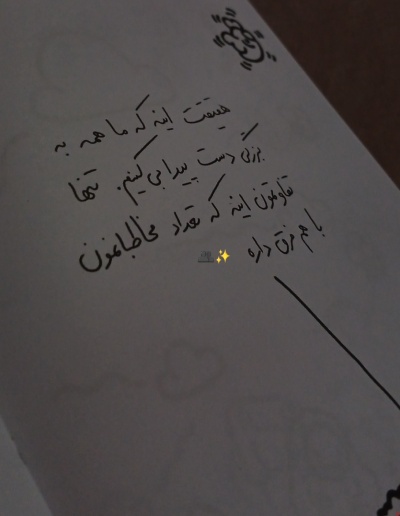 حقیقت اینه که ما همه به
بزرگی دست پیدا می‌کنیم. تنها
تفاوتمون اینه که تعداد مخاطبامون
با هم فرق داره